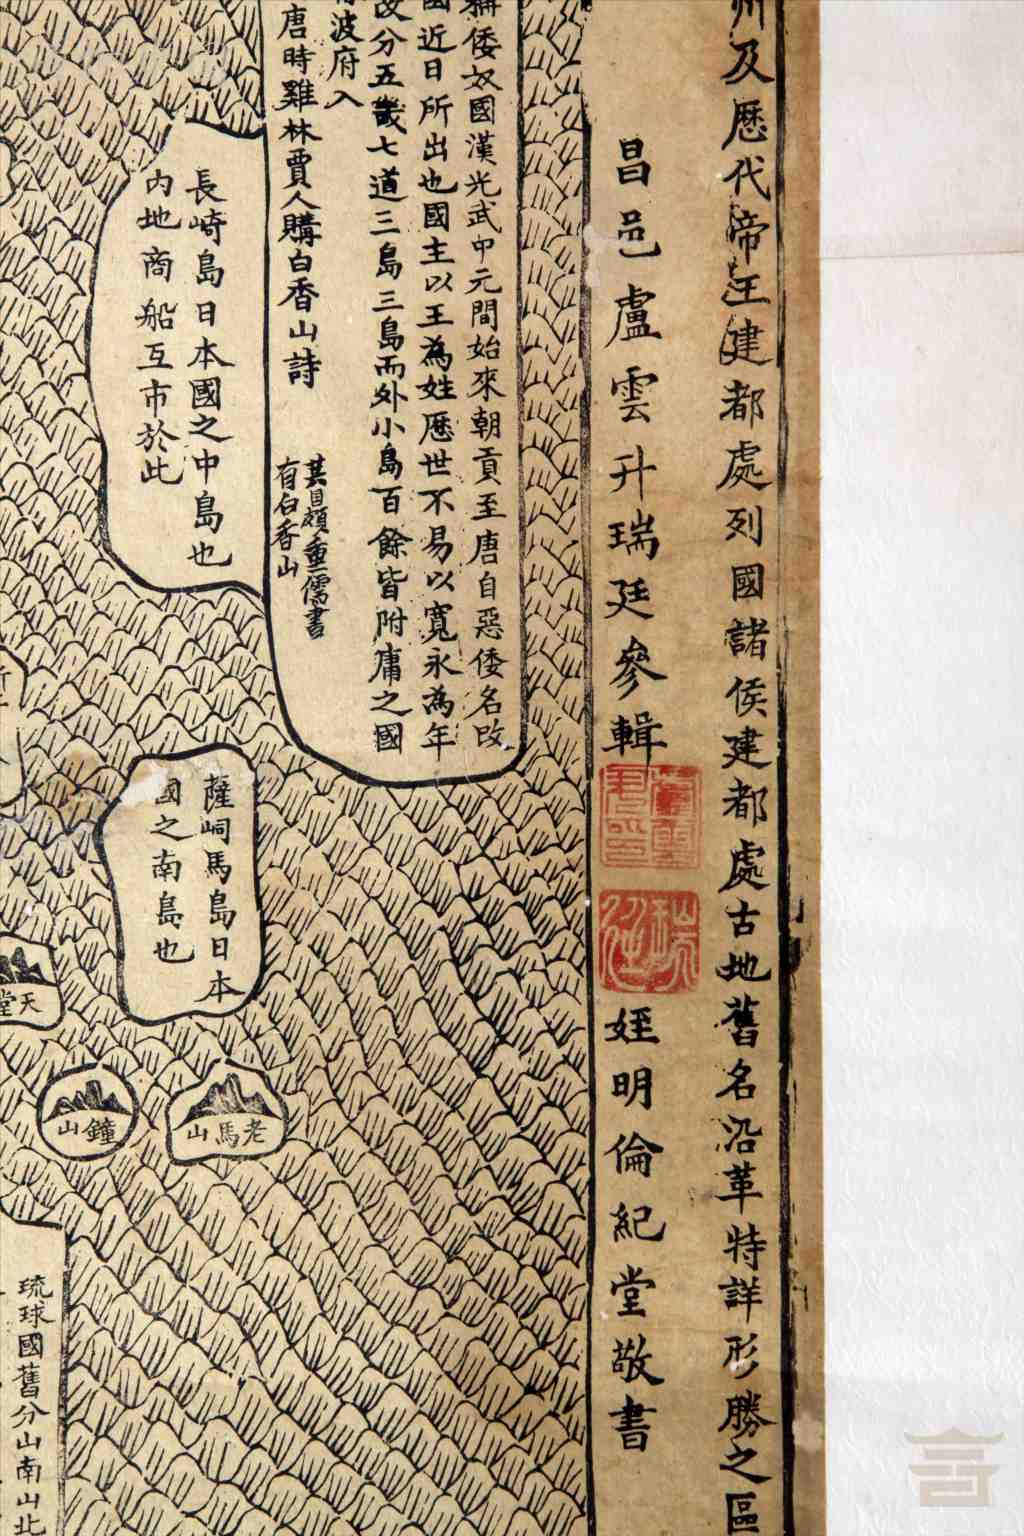 州及歷代帝王建都處列國諸侯建都處古地舊名沿革特詳形勝之區
昌邑盧雲升瑞廷參輯
姪明倫紀堂敬書
稱倭奴國漢光武中元間始來朝貢至唐自惡倭名改
國近日所出也國主以王為姓歷世不易以寬永為年
改分五畿七道三島三島而外小島百餘皆附庸之國
波府入
唐時雞林賈人購白香山詩
其国頗重儒書
有白香山
長崎島日本國之中島也
內地商船互市於此
薩峒馬島日本
國之南島也
天堂
老馬山
鐘山
琉球國舊分山南山北